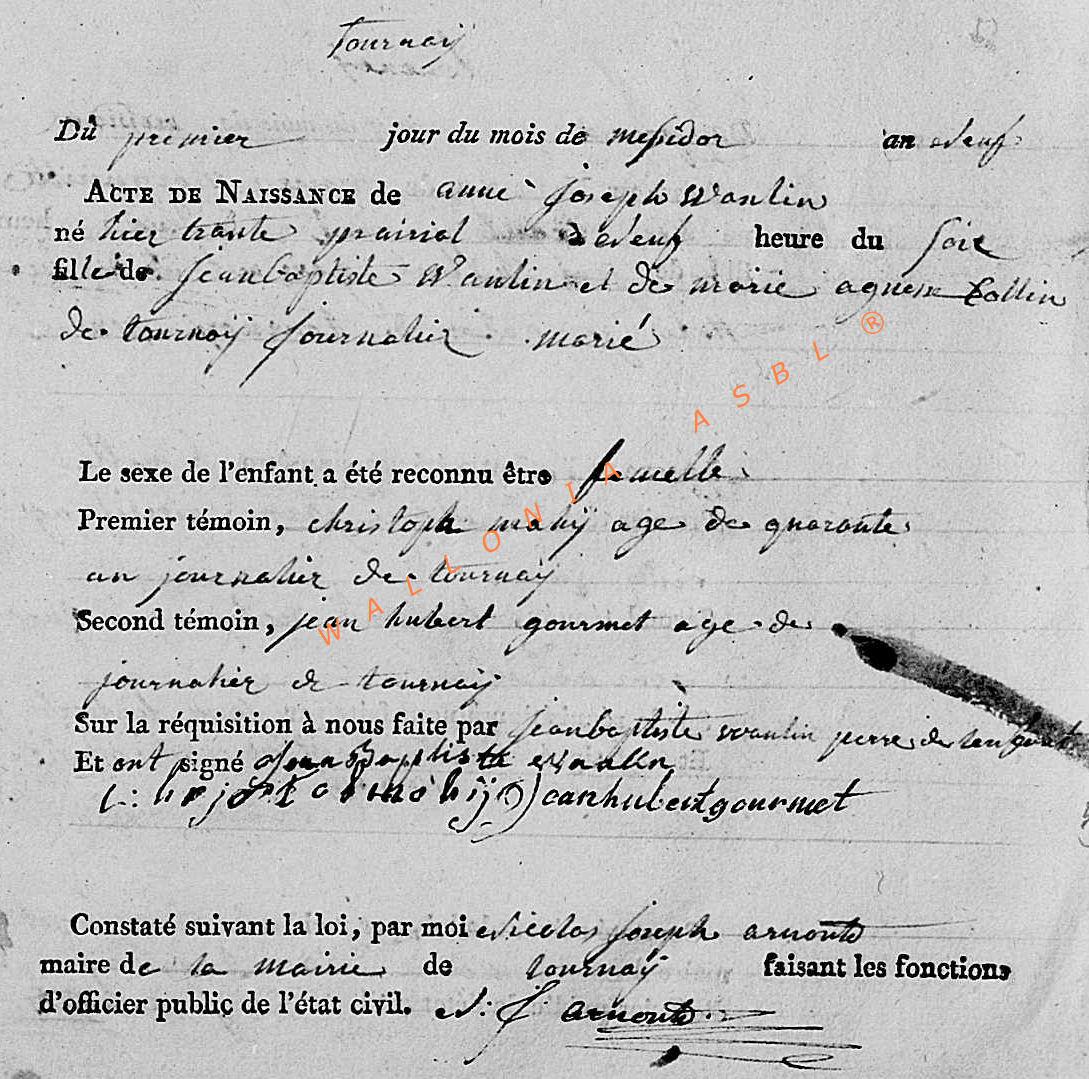 tournaÿ
Du premier jour du mois de messidor an neuf
ACTE DE NAISSANCE de anne joseph wanlin
né hier trante prairial à neuf heure du soir
fille de jean baptiste Wanlin et de marie agness Collin
de tournaÿ journalier marié
Le sexe de l'enfant a été reconnu être femelle
Premier témoin, christoph mahÿ age de quarante
an journalier de tournaÿ
Second témoin, jean hubert gourmet age de
journalier de tournaÿ
Sur la réquisition à nous faite par jean baptiste wanlin perre de lenfant
Et ont signé Jean Baptiste wanlin
jean hubert gourmet
Constaté suivant la loi, par moi Nicolas joseph arnould
maire de la mairie de tournaÿ faisant les fonctions
d'officier public de l'état civil. N: J arnould
WALLONIA ASBL ®